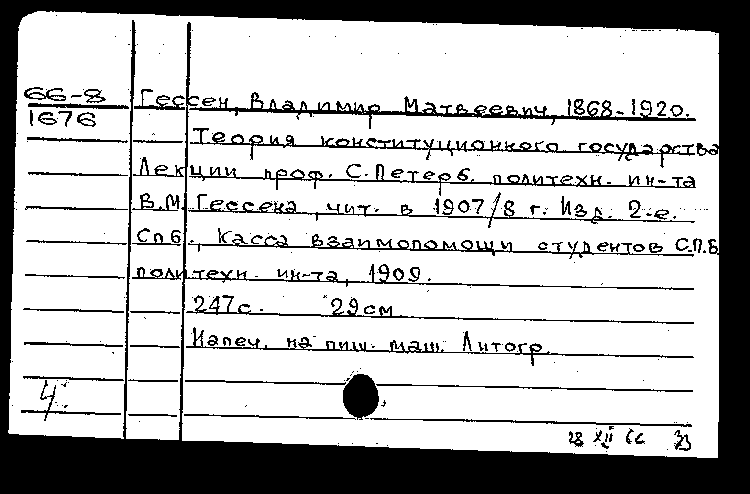 66-8
1676
Гессен, Владимир Матвеевич, 1868-1920.
Теория конституционного государства
Лекции проф. С.Петерб. политехн. ин-та
В.М.Гессена, чит. в 1907/8 г. Изд. 2-е.
Спб., Касса взаимопомощи студентов С.П.Б
политехн. ин-та, 1909.
247с. 29см
Напеч. на пиш. маш. Литогр.
4.
28 XII 66